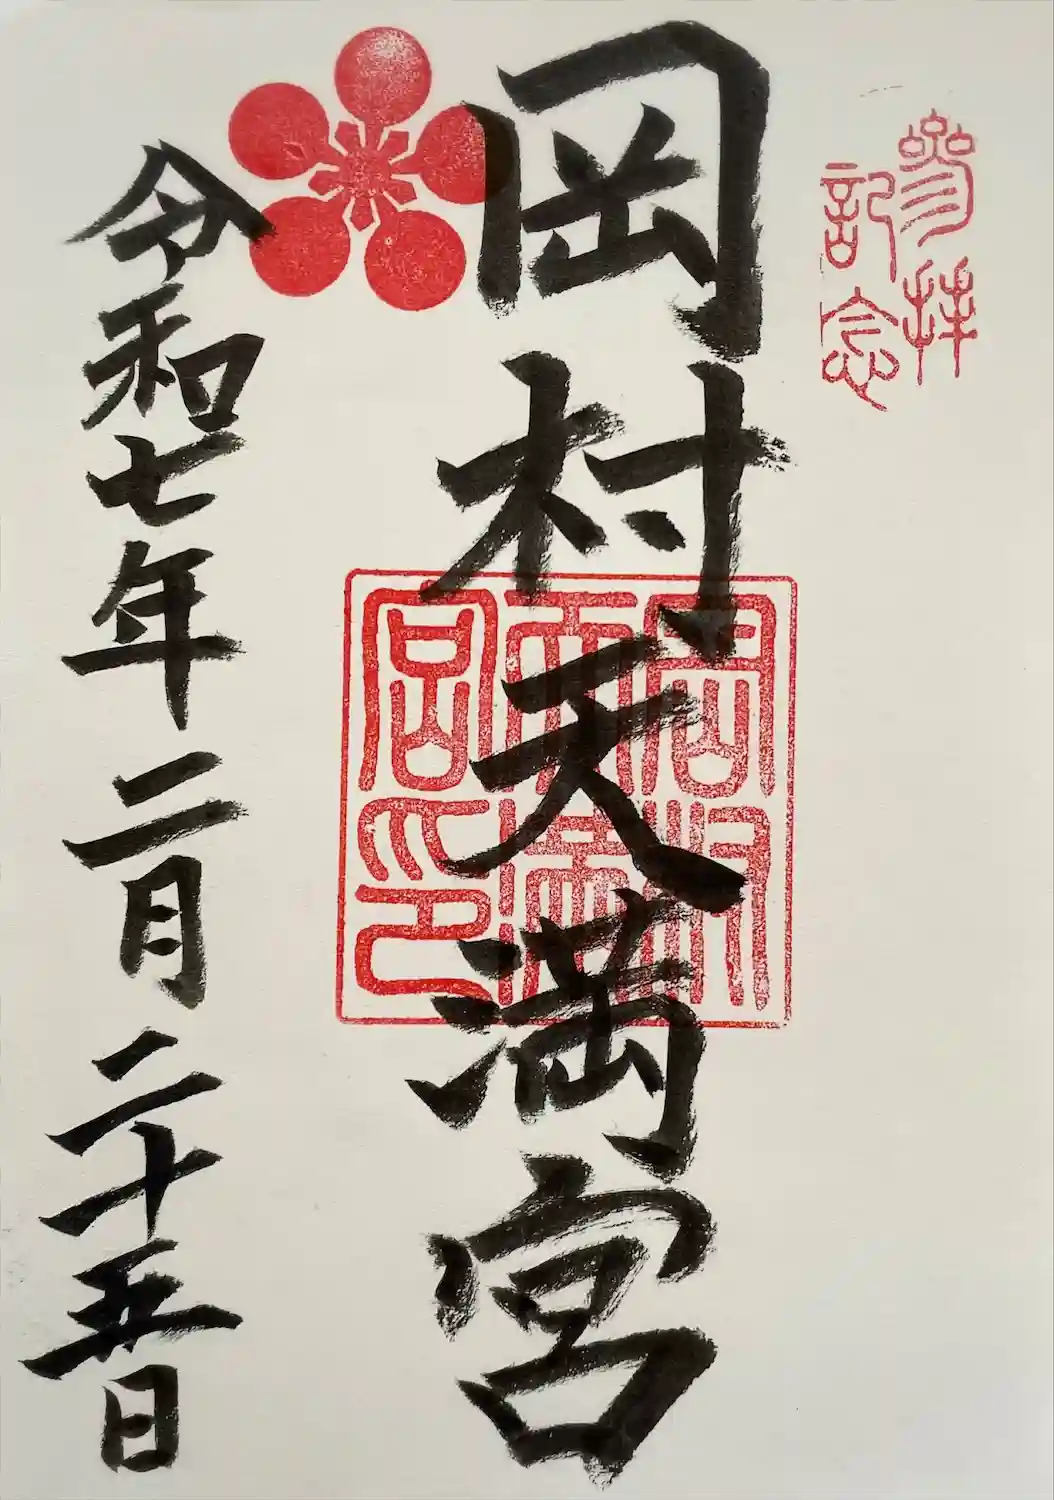 参拝
記念
岡村天満宮
岡村
天満
宮印
令和七年二月二十五日